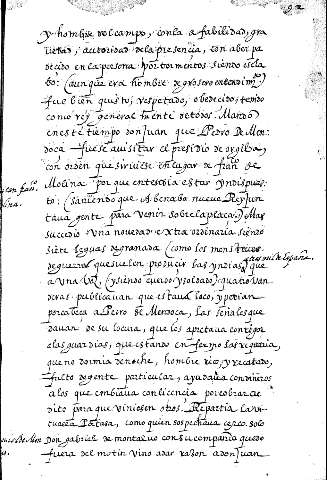 92
y hombre del campo, con la afabilidad, gra
vedad, autoridad de la presencia, con aber pa
decido en la persona por tormentos siendo escla
bo: (aunque era hombre de grosero entendim.to)
fue bien quisto, respetado, obedecido, temido
como rey general mente de todos. Mando
en este tiempo don Juan que Pedro de Men
doça fuese a visitar el presidio de orgiba,
con orden que sirviese en lugar de fran.co de
Molina por que entendia estar yndispues
to: (sabiendo que Abenabo nuevo Rey jun
tava gente para venir sobre la plaça.) Mas
sucedio una novedad extra ordinaria siendo
siete leguas de granada (como los
que suelen producir las yndias que
a una voz, (y siendo cuerdo y soldado) quatro van
deras publicavan que estava loco, y pedian
por cabeça a Pedro de Mendoça, las señales que
davan de su locura, que les apretava con rigor
a las guardias, que estando enfermo las repartia,
que no dormia de noche, hombre rico y recatado,
falto de gente particular, ayudava con dineros
a los que embiava con licencia por cobrar cre
dito para que viniesen otros. Repartia la vi
tualla tasada, como quien sospechava cerco solo
Don gabriel de montalvo con su compañia quedo
fuera del motin vino a dar razon a don Juan